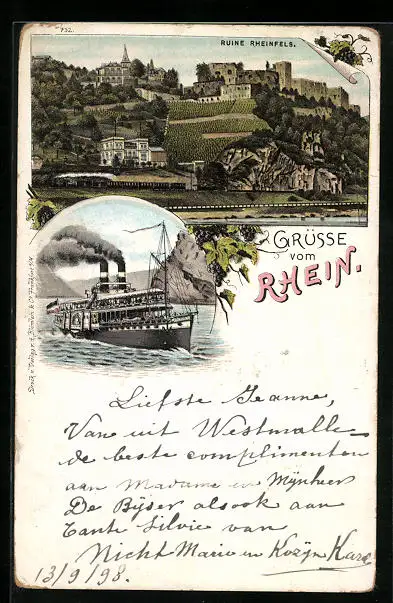 732.
RUINE RHEINFELS.
GRÜSSE
vom
RHEIN.
Liefste Jeanne,
Van uit Westmalle
de beste complimenten
aan Madame en Mynheer
De Byser alsook aan
Tante Silvie van
Nicht Marie en Kozyn Karel
13/9/98.